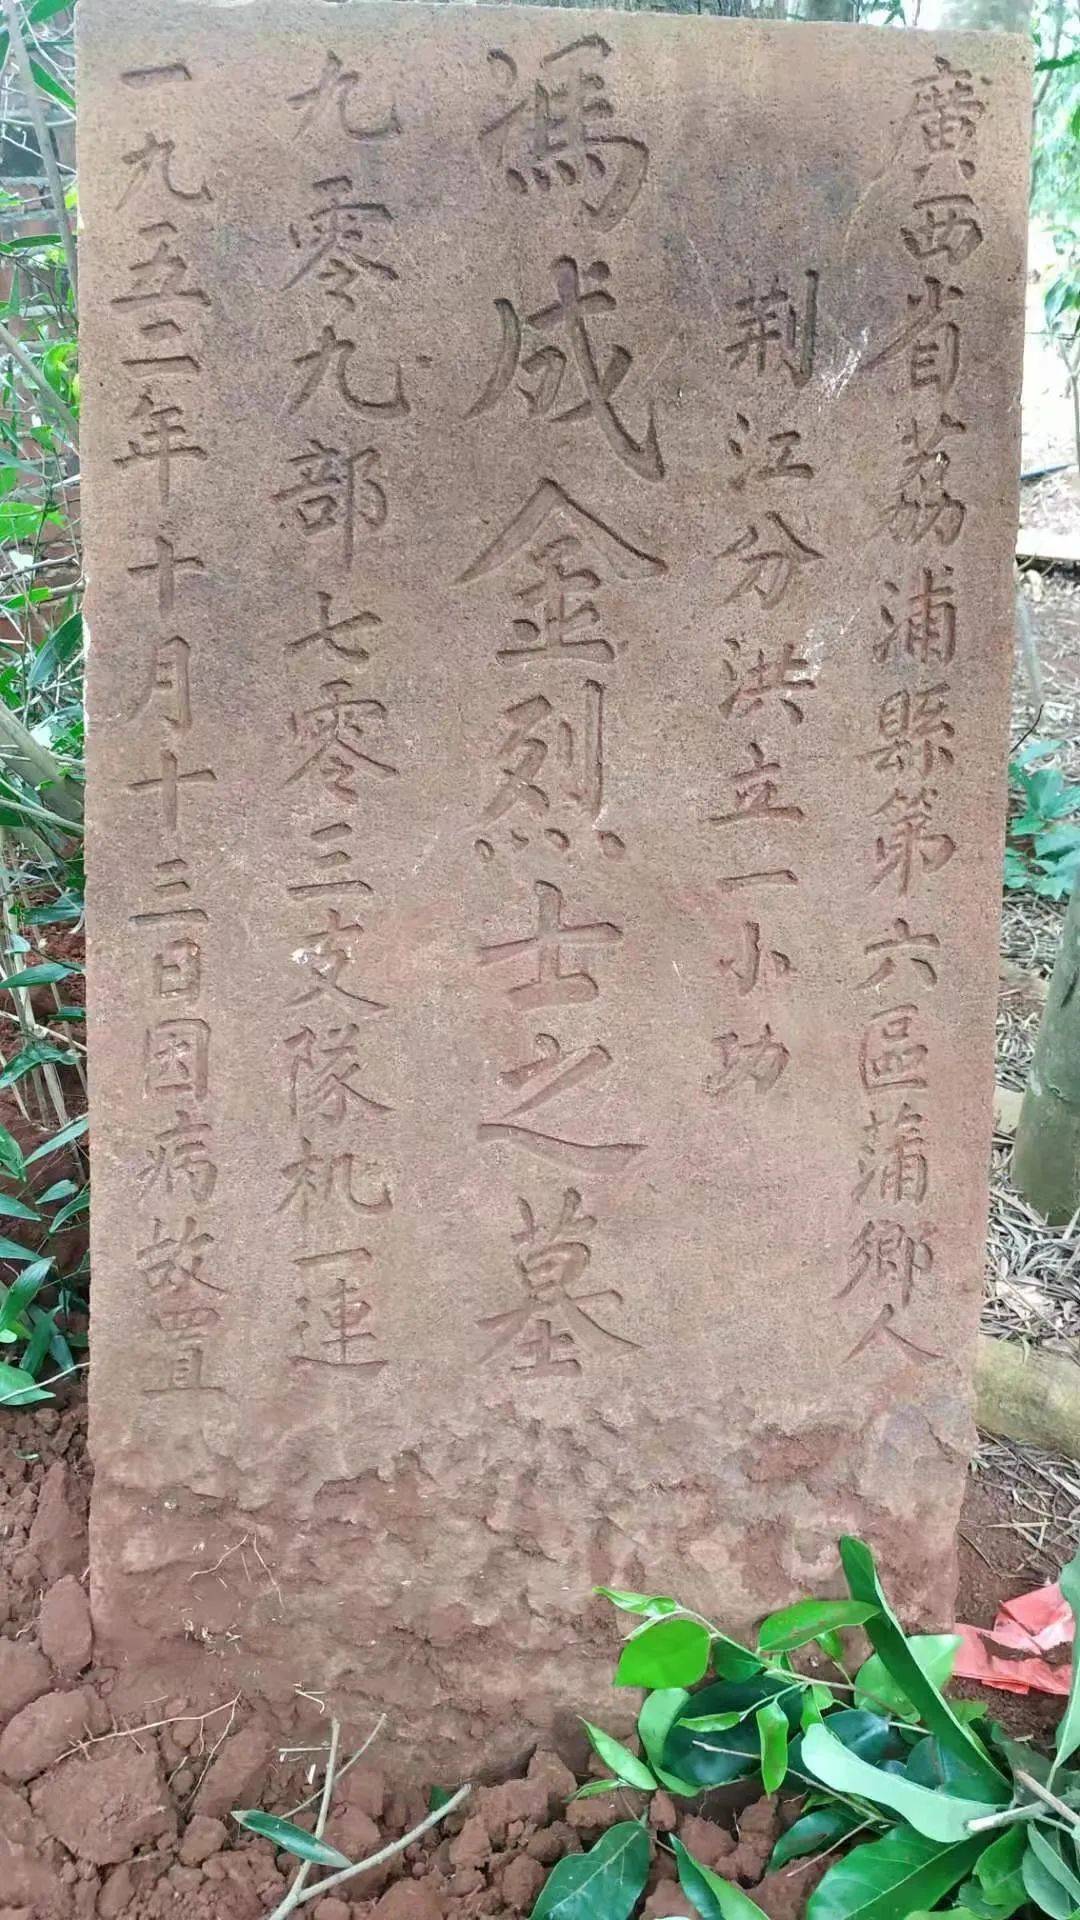 廣西省荔浦縣第六區蒲鄉人
荆江分洪立一小功
馮成金烈士之墓
九零九部七零三支隊机一連
一九五二年十月十三日因病故置